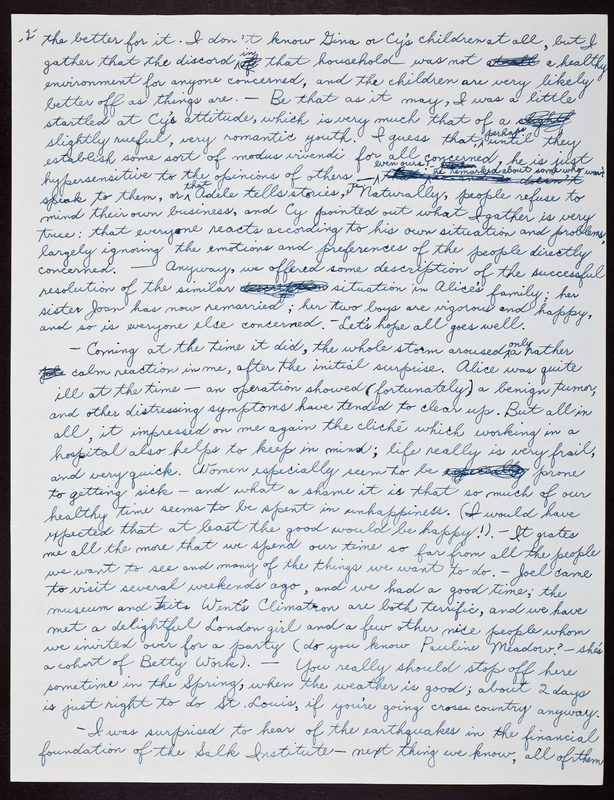 -2-
the better for it. I don't know Gina or Cy's children at all, but I
gather that the discord in that household was not a healthy
environment for anyone concerned, and the children are very likely
better off as things are. — Be that as it may, I was a little
startled at Cy's attitude, which is very much that of a
slightly rueful, very romantic youth. I guess that, perhaps until they
establish some sort of modus vivendi for all concerned, he is just
hypersensitive to the opinions of others — even ours; he remarked about some who won't
speak to them, or that Adele tells stories, Naturally, people refuse to
mind their own business, and Cy pointed out what I gather is very
true: that everyone reacts according to his own situation and problems
largely ignoring the emotions and preferences of the people directly
concerned. — Anyway, we offered some description of the successful
resolution of the similar situation in Alice's family; her
sister Joan has now remarried; her two boys are vigorous and happy,
and so is everyone else concerned. - Let's hope all goes well.
- Coming at the time it did, the whole storm aroused only a rather
calm reaction in me, after the initial surprise. Alice was quite
ill at the time — an operation showed (fortunately) a benign tumor,
and other distressing symptoms have tended to clear up. But all in
all, it impressed on me again the cliché which working in a
hospital also helps to keep in mind; life really is very frail,
and very quick. Women especially seem to be prone
to getting sick — and what a shame it is that so much of our
healthy time seems to be spent in unhappiness. (I would have
expected that at least the good would be happy!). - It grates
me all the more that we spend our time so far from all the people
we want to see and many of the things we want to do. - Joel came
to visit several weekends ago, and we had a good time; the
museum and Frits Went's Climatron are both terrific, and we have
met a delightful London girl and a few other nice people whom
we invited over for a party (do you know Pauline Meadow? - she's
a cohort of Betty Work). — You really should stop off here
sometime in the Spring, when the weather is good; about 2 days
is just right to do St. Louis, if you're going cross country anyway.
- I was surprised to hear of the earthquakes in the financial
foundation of the Salk Institute — next thing we know, all of them